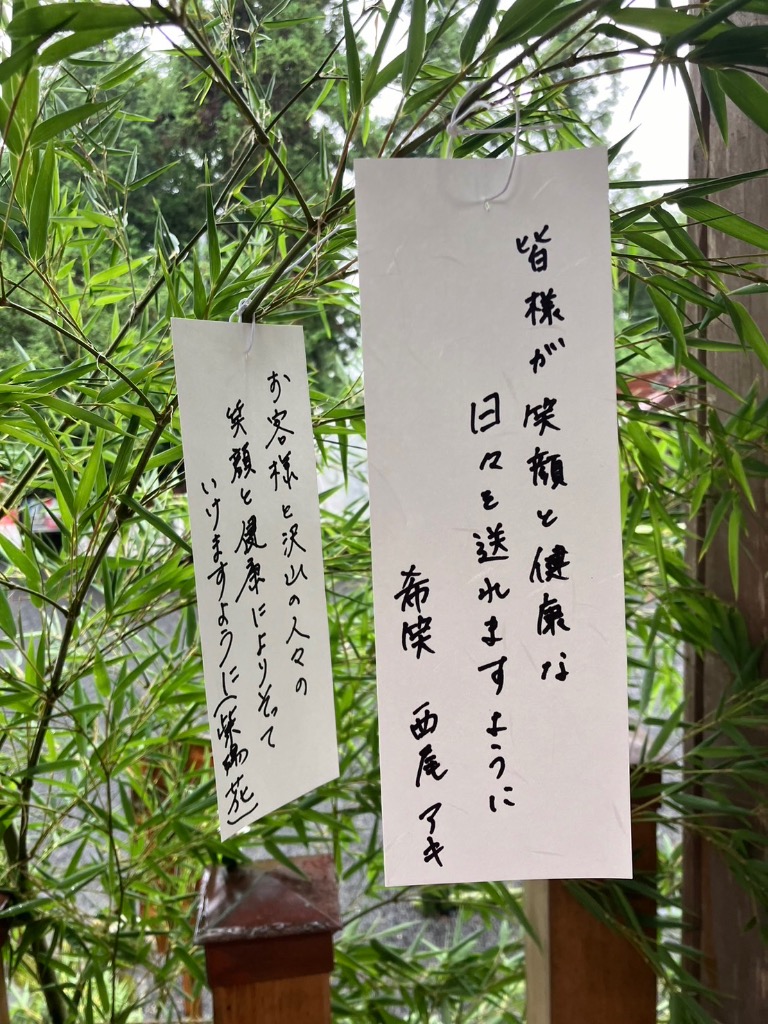 皆様が笑顔と健康な
日々を送れますように
希笑 西尾 アキ
お客様と沢山の人々の
笑顔と健康によりそって
いけますように(紫陽花)